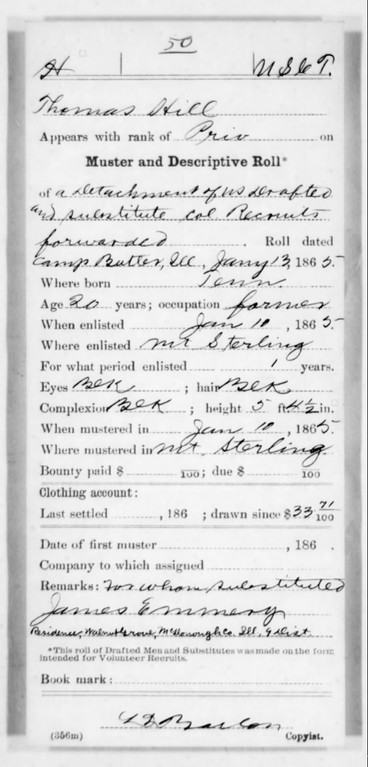 50
H | U S C T.
Thomas Hill
Appears with rank of Priv on
Muster and Descriptive Roll*
of a Detachment of US Drafted
and substitute Col Recruits
forwarded . Roll dated
Camp Butler, Ill, Jany 13, 1865.
Where born Tenn.
Age 20 years; occupation farmer
When enlisted Jan 10, 1865.
Where enlisted Mt Sterling
For what period enlisted 1 years.
Eyes Blk ; hair Blk
Complexion Blk ; height 5 ft. 4½ in.
When mustered in Jan 10, 1865.
Where mustered in Mt. Sterling
Bounty paid $ 100; due $ 100
Clothing account:
Last settled , 186 ; drawn since $ 33 71/100
Date of first muster , 186 .
Company to which assigned
Remarks: For whom substituted
James Emmery
Residence, Walnut Grove, McDonough Co. Ill, 9 Dist.
*This roll of Drafted Men and Substitutes was made on the form
intended for Volunteer Recruits.
Book mark:
(356m) Copyist.